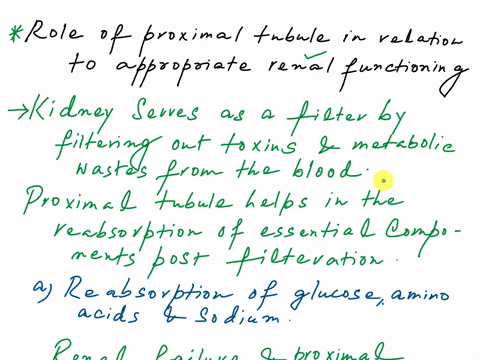 * Role of proximal tubule in relation
to appropriate renal functioning
→ Kidney serves as a filter by
filtering out toxins & metabolic
wastes from the blood.
Proximal tubule helps in the
reabsorption of essential compo-
nents post filteration.
a) Reabsorption of glucose, amino
acids & sodium.
Renal failure & proximal